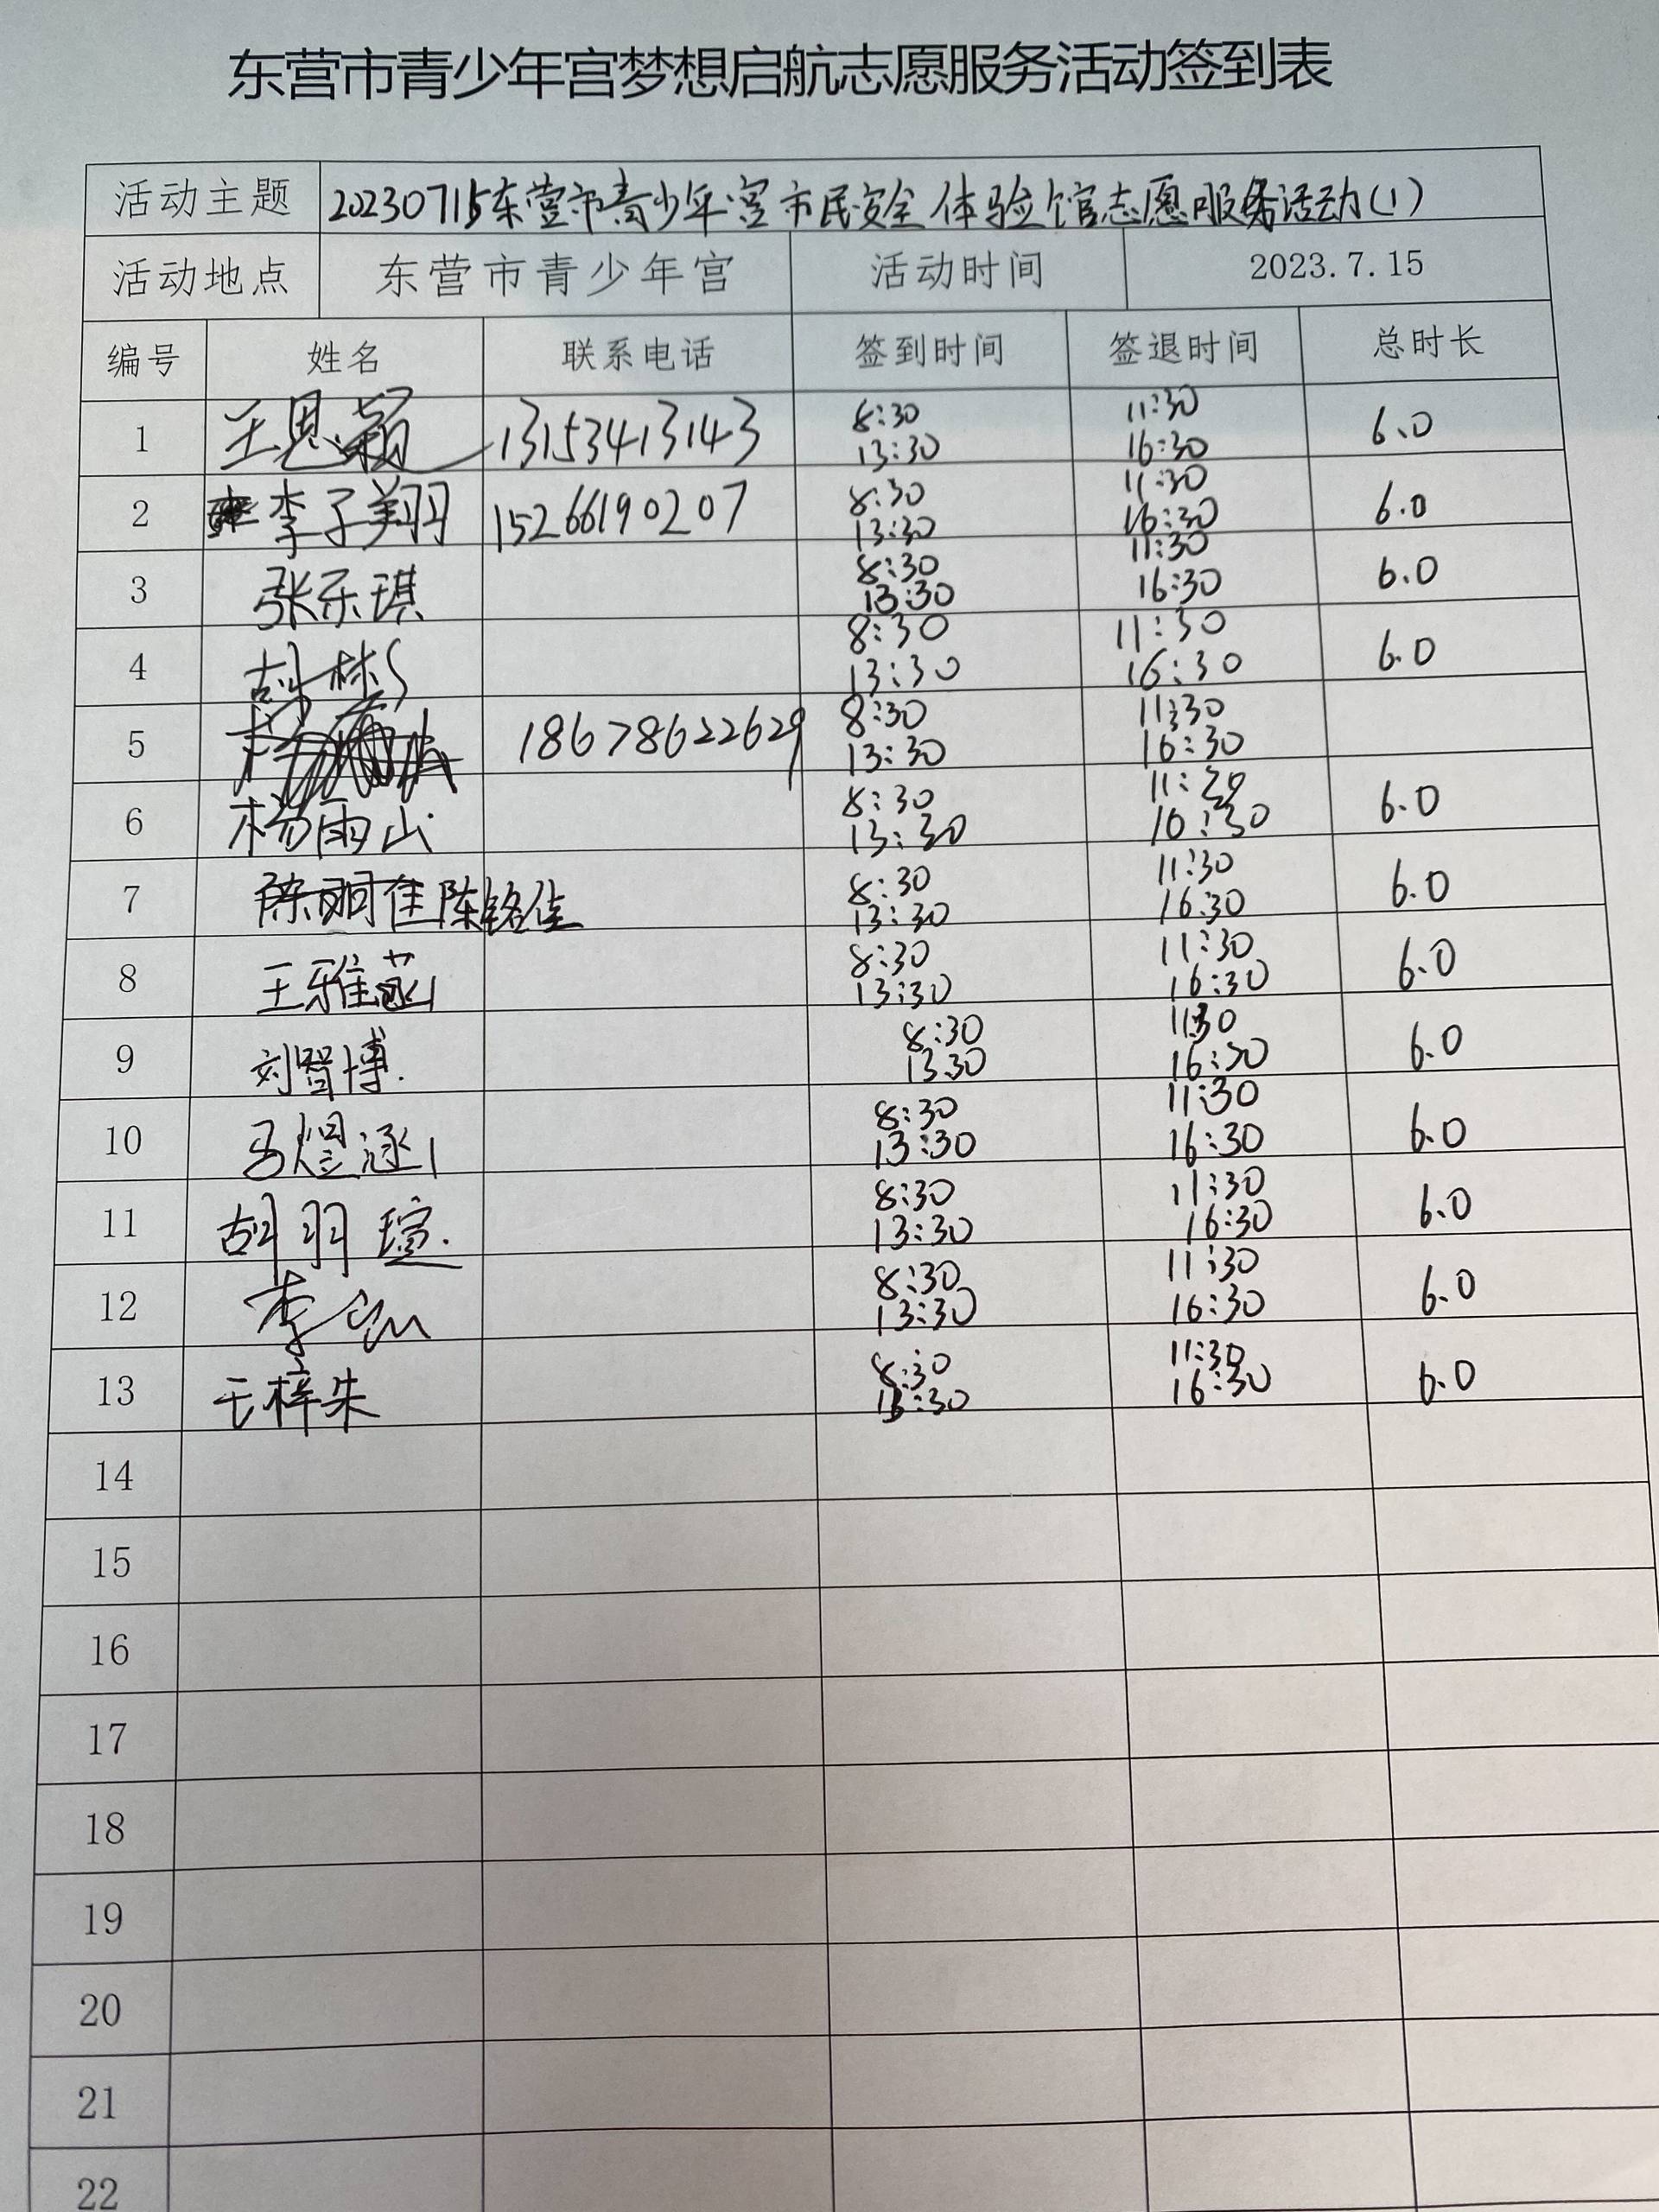 东营市青少年宫梦想启航志愿服务活动签到表
活动主题 20230715东营市青少年宫市民安全体验馆志愿服务活动(1)
活动地点 东营市青少年宫 活动时间 2023.7.15
编号 姓名 联系电话 签到时间 签退时间 总时长
1 王思颖 13153413143 8:30 13:30 11:30 16:30 6.0
2 李子翔 15266190207 8:30 13:30 11:30 16:30 6.0
3 张乐琪 8:30 13:30 11:30 16:30 6.0
4 胡彬 8:30 13:30 11:30 16:30 6.0
5 18678622629 8:30 13:30 11:30 16:30
6 杨雨山 8:30 13:30 11:30 16:30 6.0
7 陈铭佳 8:30 13:30 11:30 16:30 6.0
8 王雅菡 8:30 13:30 11:30 16:30 6.0
9 刘智博. 8:30 13:30 11:30 16:30 6.0
10 马煜涵 8:30 13:30 11:30 16:30 6.0
11 胡羽瑄. 8:30 13:30 11:30 16:30 6.0
12 李 8:30 13:30 11:30 16:30 6.0
13 王梓朱 8:30 13:30 11:30 16:30 6.0
14
15
16
17
18
19
20
21
22